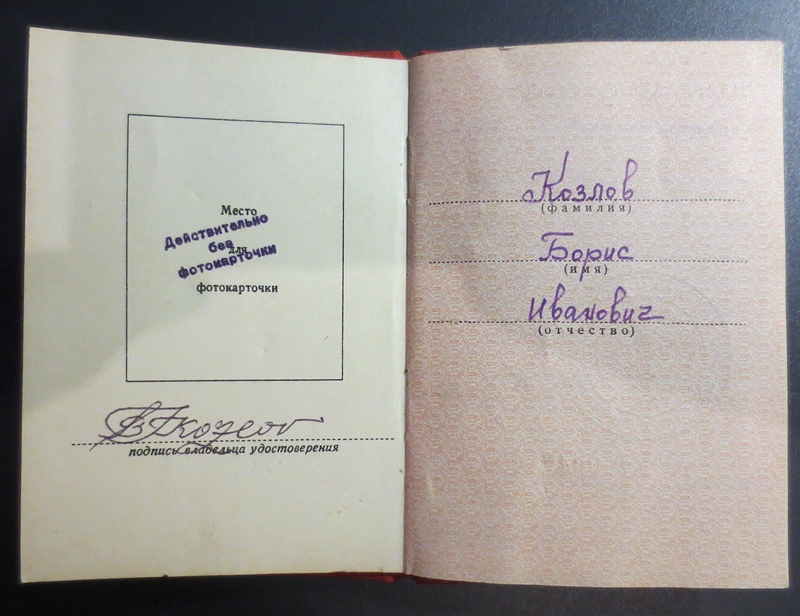 Место
Действительно
без
для
фотокарточки
фотокарточки
подпись владельца удостоверения
Козлов
(фамилия)
Борис
(имя)
Иванович
(отчество)